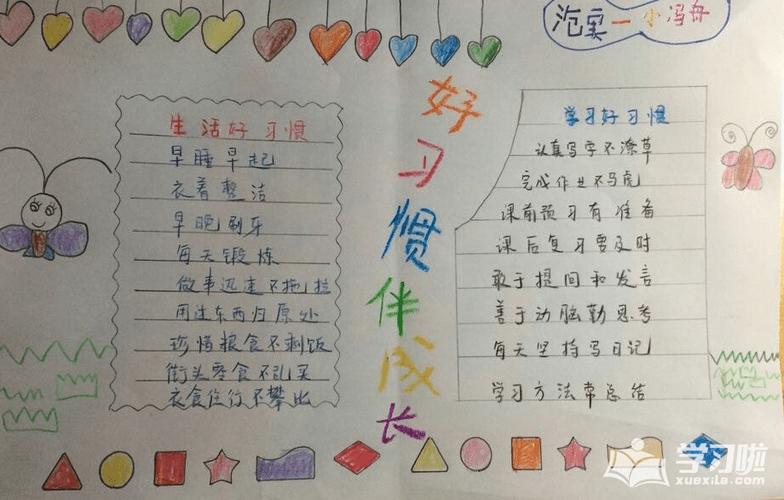 泡实一小冯舟
好习惯伴成长
生活好习惯
早睡早起
衣着整洁
早晚刷牙
每天锻炼
做事迅速不拖拉
用过东西归原处
珍惜粮食不剩饭
街头零食不乱买
衣食住行不攀比
学习好习惯
认真写字不潦草
完成作业不马虎
课前预习有准备
课后复习要及时
敢于提问和发言
善于动脑勤思考
每天坚持写日记
学习方法常总结
学习啦
xuexila.com